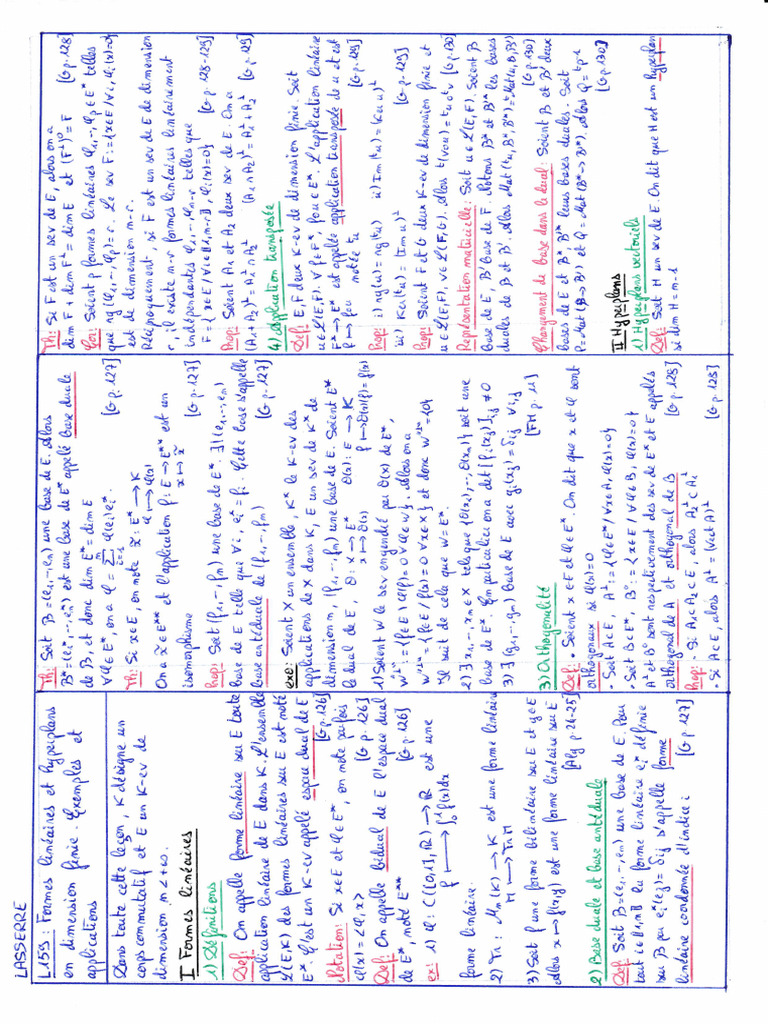 LASSERRE
L159 : Formes linéaires et hyperplans
en dimension finie. Exemples et
applications
Dans toute cette leçon, K désigne un
corps commutatif et E un K-ev de
dimension n < +∞.
I Formes linéaires
1) Définitions
Def: On appelle forme linéaire sur E toute
application linéaire de E dans K. L'ensemble
L(E,K) des formes linéaires sur E est noté
E*. C'est un K-ev appelé espace dual de E
[G p.126]
Notation: Si x∈E et φ∈E*, on note parfois
φ(x) = <φ,x> [G p.126]
Def: On appelle bidual de E l'espace dual
de E*, noté E** [G p.126]
ex: 1) φ: C([0,1],R) → R est une
f ↦ ∫₀¹ f(x)dx
forme linéaire.
2) Tr: Mn(K) → K est une forme linéaire
M ↦ Tr M
3) Soit f une forme bilinéaire sur E et y∈E
Alors x ↦ f(x,y) est une forme linéaire sur E
[Alg p 24-25]
2) Base duale et base antéduale
Def: Soit B=(e1,-,en) une base de E. Pour
tout i∈⟦1,n⟧ la forme linéaire ei* définie
sur B par ei*(ej) = δij s'appelle forme
linéaire coordonnée d'indice i [G p.127]
Th: Soit B=(e1,-,en) une base de E. Alors
B*=(e1*,--,en*) est une base de E* appelé base duale
de B, et donc dim E* = dim E
∀φ∈E*, on a φ = Σ φ(ei)ei*. [G p.127]
Th: Si x∈E, on note x̃: E* → K
φ ↦ φ(x)
On a x̃∈E** et l'application f: E → E** est un
x ↦ x̃
isomorphisme [G p.127]
Prop: Soit (f1,-,fn) une base de E*. ∃!(e1,-,en)
base de E telle que ∀i, ei* = fi. Cette base s'appelle
base antéduale de (f1,-,fn) [G p.127]
exo: Soient X un ensemble, K^X le K-ev des
applications de X dans K, E un sev de K^X de
dimension n, (f1,-,fn) une base de E. Soient E*
le dual de E, Θ: X → E* Θ(x): E → K
x ↦ Θ(x) f ↦ Θ(x)(f)=f(x)
1) Soient W le sev engendré par Θ(X) de E*,
W'⊥ = {f∈E \ φ(f)=0 ∀φ∈W}. Alors on a
W'⊥ = {f∈E / f(x)=0 ∀x∈X} et donc W'⊥={0}
Il suit de cela que W=E*
2) ∃ x1,-,xn∈X tels que {Θ(x1),-,Θ(xn)} soit une
base de E*. En particulier on a det [fi(xj)]ij ≠ 0
3) ∃ (g1,-gn) base de E avec gi(xj) = δij ∀i,j
[FH p.11]
3) Orthogonalité
Def: • Soient x∈E et φ∈E*. On dit que x et φ sont
orthogonaux si φ(x)=0
• Soit A⊂E, A⊥ := {φ∈E* / ∀x∈A, φ(x)=0}
• Soit B⊂E*, B° := {x∈E / ∀φ∈B, φ(x)=0}
A⊥ et B° sont respectivement des sev de E* et E appelés
orthogonal de A et orthogonal de B [G p.128]
Prop: • Si A1⊂A2⊂E, alors A2⊥⊂A1⊥
• Si A⊂E, alors A⊥=(Vect A)⊥ [G p.128]
Th: Si F est un sev de E, alors on a
dim F + dim F⊥ = dim E et (F⊥)° = F
[G p.128]
Cor: Soient p formes linéaires φ1,-,φp∈E* telles
que rg(φ1,-,φp)=r. Le sev F:={x∈E/∀i, φi(x)=0}
est de dimension n-r.
Réciproquement, si F est un sev de E de dimension
r, il existe n-r formes linéaires linéairement
indépendantes φ1,-,φn-r telles que
F={x∈E/∀i∈⟦1,n-r⟧, φi(x)=0} [G p.128-129]
Prop: Soient A1 et A2 deux sev de E. On a
(A1+A2)⊥=A1⊥∩A2⊥ (A1∩A2)⊥=A1⊥+A2⊥ [G p.129]
4) Application transposée
Def: E,F deux K-ev de dimension finie. Soit
u∈L(E,F). ∀f∈F*, fou∈E*. L'application linéaire
F* → E* est appelée application transposée de u et est
f ↦ fou notée tu [G p.129]
Prop: i) rg(u)=rg(tu) ii) Im(tu)=(Ker u)⊥
iii) Ker(tu)=(Im u)⊥ [G p.129]
Prop: Soient F et G deux K-ev de dimension finie et
u∈L(E,F), v∈L(F,G). Alors t(vou)=tuotv [G p.130]
Représentation matricielle: Soit u∈L(E,F). Soient B
base de E, B' base de F. Notons B* et B'* les bases
duales de B et B'. Alors Mat(tu,B'*,B*)=tMat(u,B,B')
[G p.130]
Changement de base dans le dual: Soient B et B' deux
bases de E et B*,B'* leurs bases duales. Soit
P=Mat(B→B') et Q=Mat(B*→B'*), alors Q=tP-1
[G p.130]
II Hyperplans
1) Hyperplans vectoriels
Def: Soit H un sev de E. On dit que H est un hyperplan
si dim H=n-1